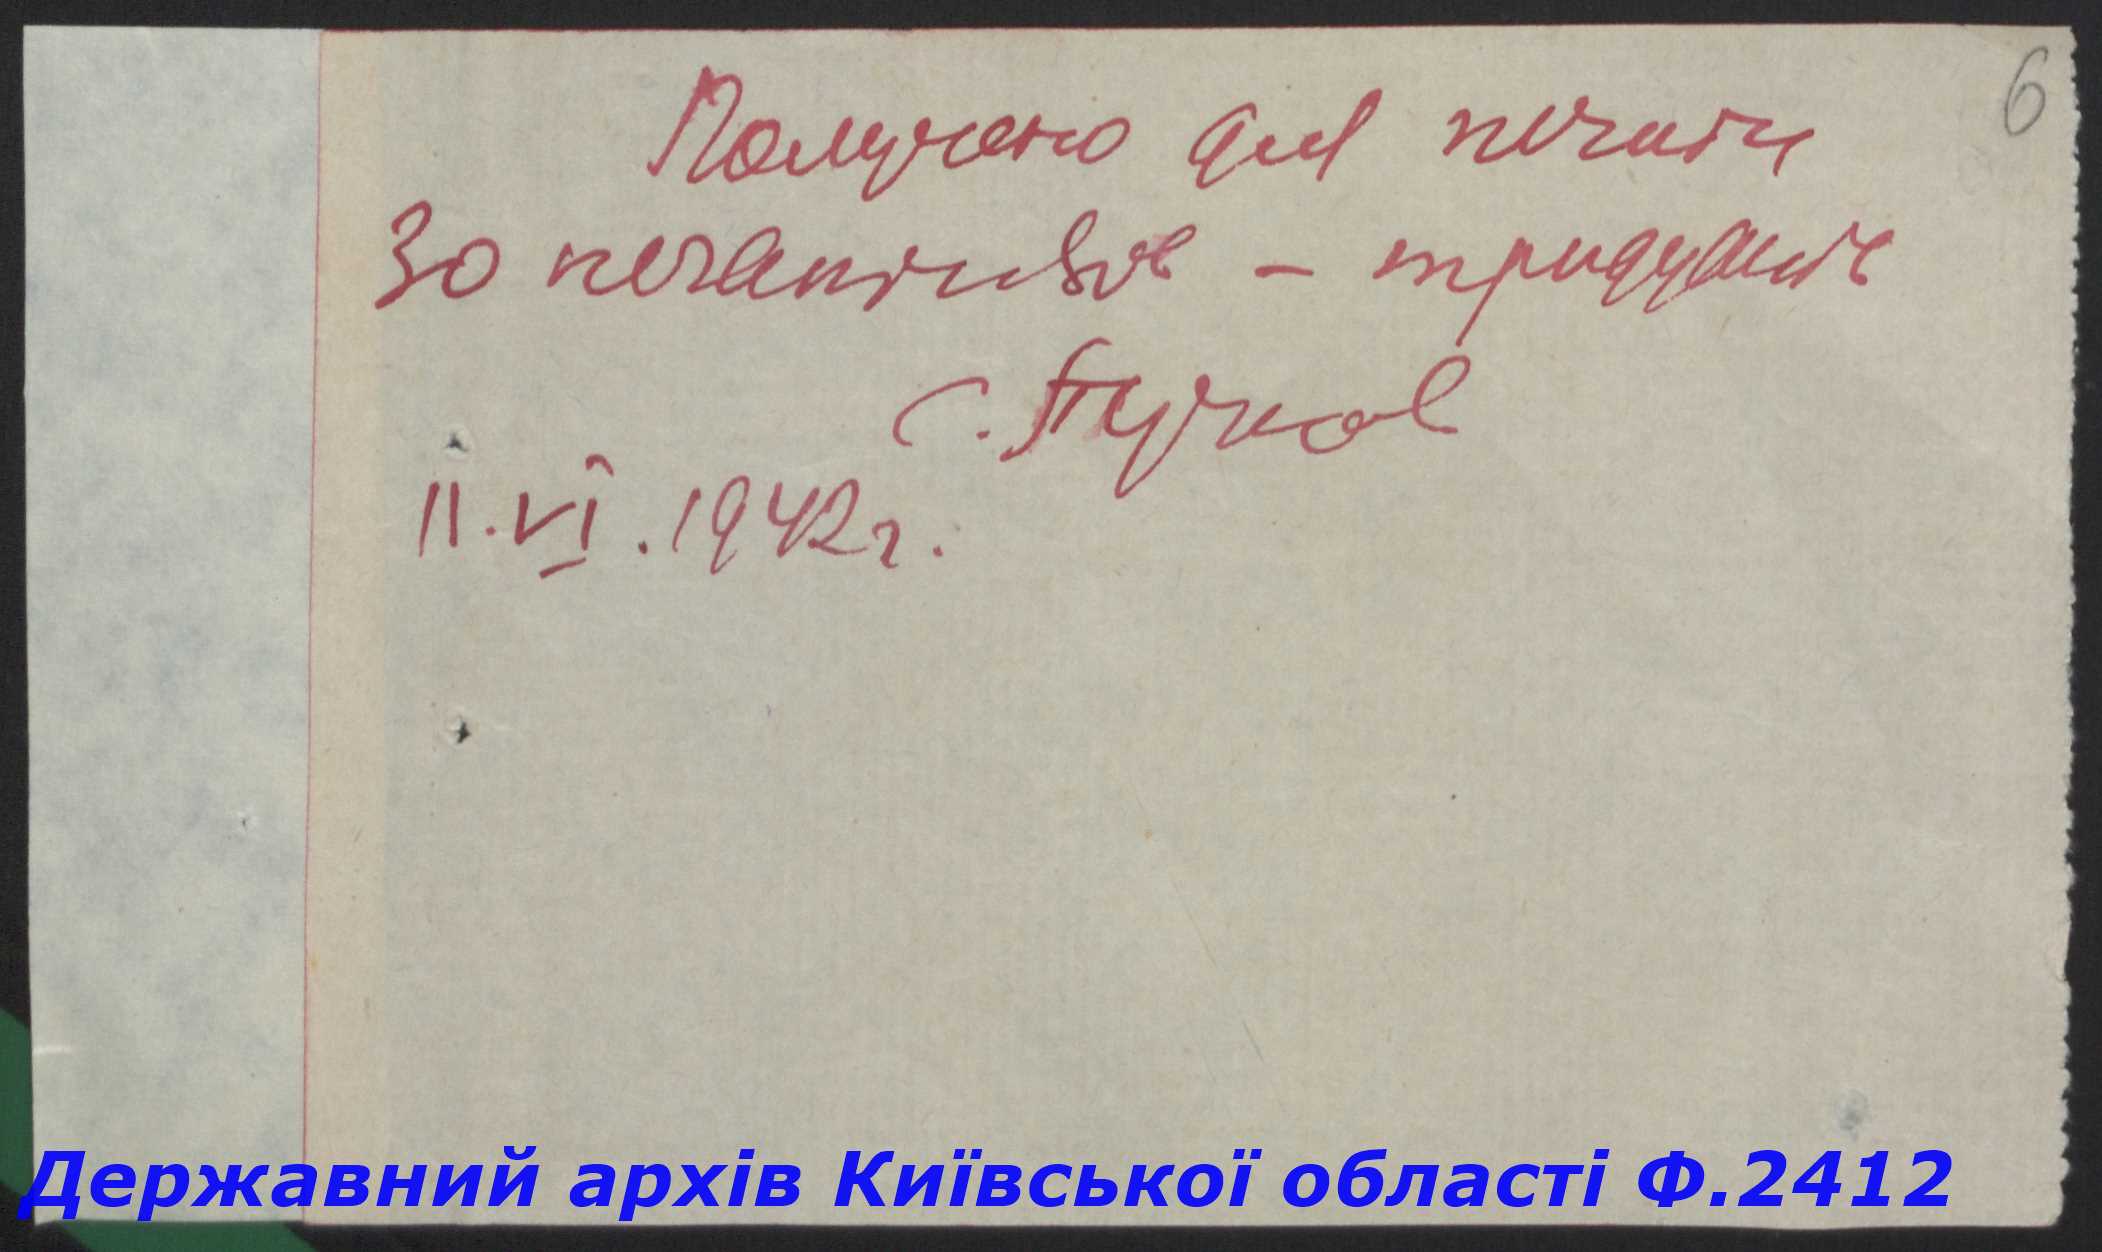 6
Получено для печати
30 негативов – тридцать
С. Пучков
11.VI.1942 г.
Державний архів Київської області Ф.2412